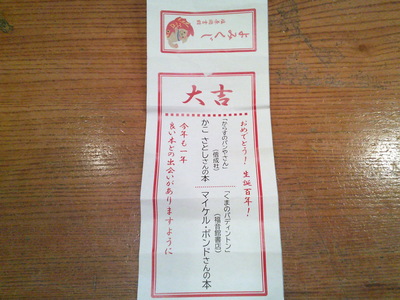 よみくじ
大吉
おめでとう! 生誕百年!
「くまのパディントン」
(福音館書店)
マイケル・ボンドさんの本
「からすのパンやさん」
(偕成社)
かこ さとしさんの本
今年も一年
良い本との出会いがありますように